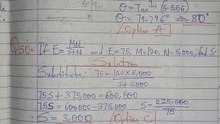 θ = Tan⁻¹ (5.656)
θ = 79.976° ≈ 80°
Option A
Q50: If E = MN/S+N and E=75, M=120, N=5,000, find S
Solution
Substitute: 75 = 120×5,000/S+5,000
75S + 375,000 = 600,000
75S = 600,000 - 375,000 S = 225,000/75
S = 3,000 Option C